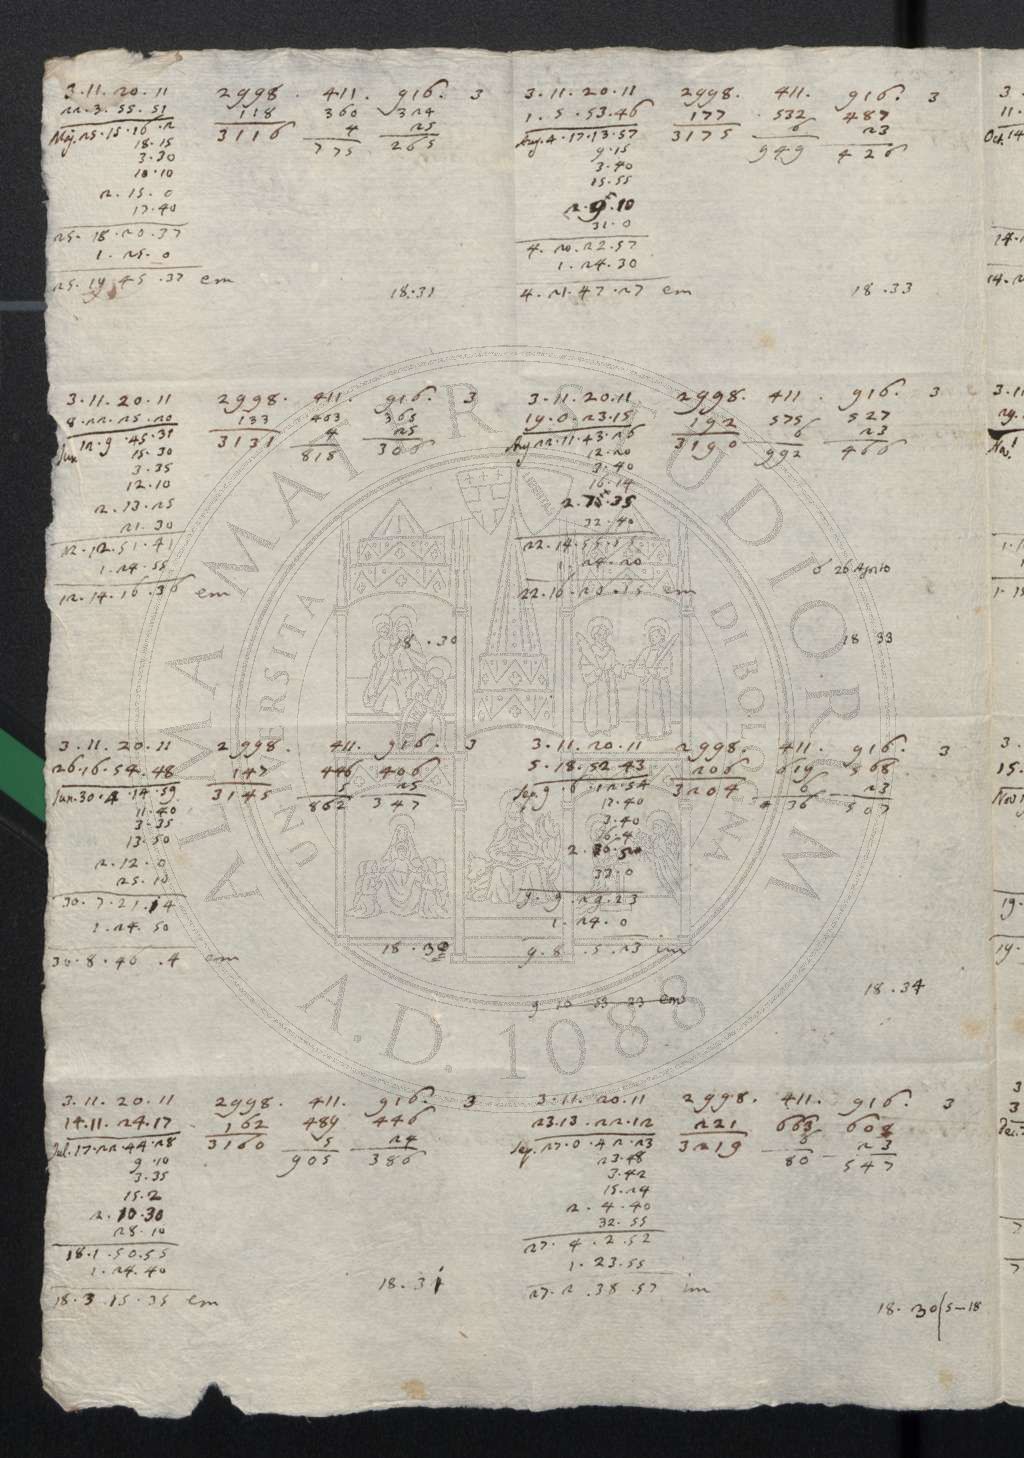 3·11·20·11 2998· 411· 916· 3
22·3·55·51 118 360 324
Maj. 25·15·16·2 3116 4 25
18·15 775 265
3·30
10·10
2·15·0
17·40
25·18·20·37
1·25·0
25·19·45·37 em
18·31
3·11·20·11 2998· 411· 916· 3
1·5·53·46 177 532 487
Aug. 4·17·13·57 3175 6 23
9·15 949 426
3·40
15·55
2·9·10
31·0
4·20·22·57
1·24·30
4·21·47·27 em
18·33
3·11·20·11 2998· 411· 916· 3
8·22·25·20 133 403 365
Jun 12·9·45·31 3131 4 25
15·30 818 306
3·35
12·10
2·13·25
21·30
12·12·51·41
1·24·55
12·14·16·36 em
18·30
3·11·20·11 2998· 411· 916· 3
19·0·23·15 192 575 527
Aug 22·11·43·26 3190 6 23
12·20 992 466
3·40
16·14
35
32·40
22·14·55·55
1·24·20
22·16·
em
26 Agosto
18 33
3·11·20·11 2998· 411· 916· 3
26·16·54·48 147 446 406
Jun. 30·4·14·59 3145 5 25
11·40 862 347
3·35
13·50
2·12·0
25·10
30·7·21·14
1·24·50
30·8·46·4 em
18·30
3·11·20·11 2998· 411· 916· 3
5·18·52·43 206 619 568
Sep. 9·6·12·54 3204 6 23
13·40 36 507
3·40
16·4
2·10·50
33·0
9·9·29·23
1·24·0
9·8·5·23 im
9 10 53 23 em
18·34
3·11·20·11 2998· 411· 916· 3
14·11·24·17 162 489 446
Jul. 17·22·44·28 3160 5 24
9·10 905 386
3·35
15·2
2·10·30
28·10
18·1·50·55
1·24·40
18·3·15·35 em
18·31
3·11·20·11 2998· 411· 916· 3
23·13·22·12 221 663 608
Sep. 27·0·42·23 3219 6 23
23·48 80 547
3·42
15·24
2·4·40
32·55
27·4·2·52
1·23·55
27·2·38·57 im
18·30/5–18
ALMA MATER STUDIORUM
UNIVERSITA DI BOLOGNA
A.D. 1088